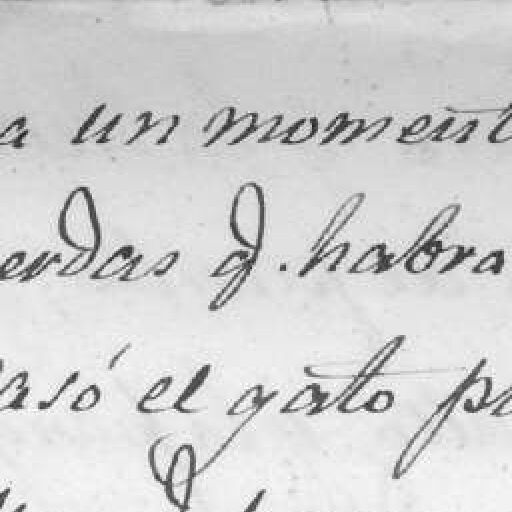 a un moment
erdas q. habra
asó el gato p